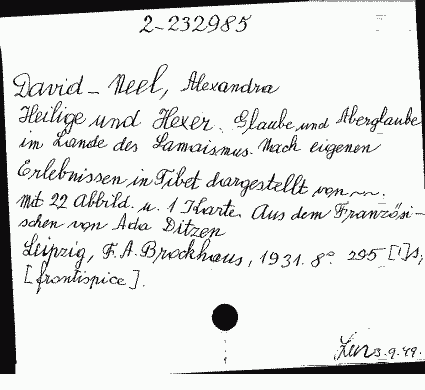 2-232985
David-Neel, Alexandra
Heilige und Hexer. Glaube und Aberglaube
im Lande des Lamaismus. Nach eigenen
Erlebnissen in Tibet dargestellt von ~~.
Mit 22 Abbild. u. 1 Karte. Aus dem Französi-
schen von Ada Ditzen
Leipzig, F. A. Brockhaus, 1931. 8° 295 [1] s,
[frontispice].
3.9.49.